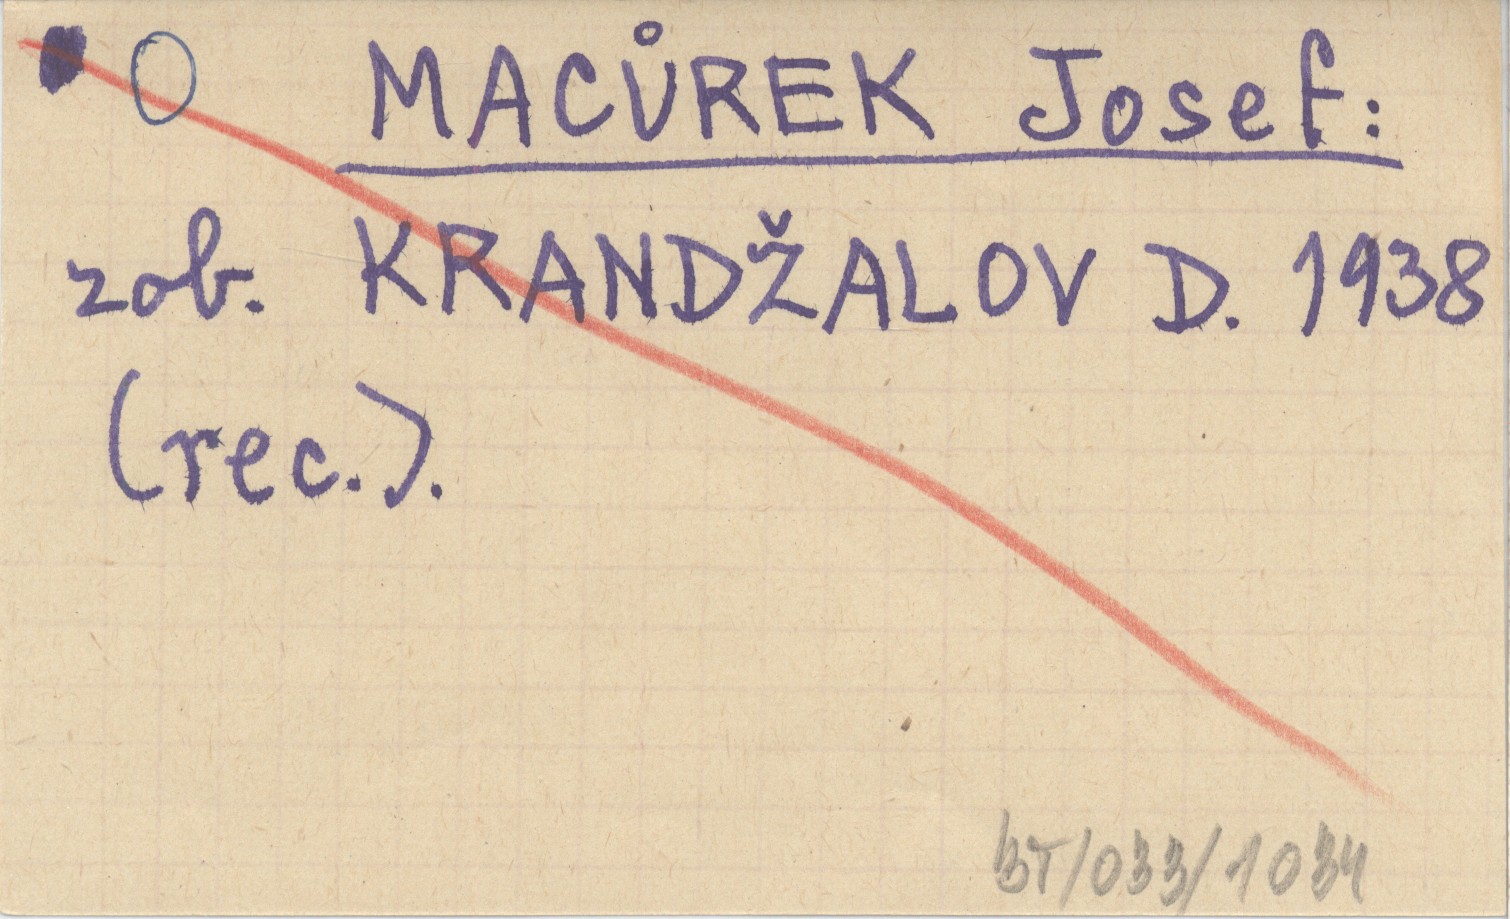 MACŮREK Josef:
zob. KRANDŽALOV D. 1938
(rec.).
BT/033/1034